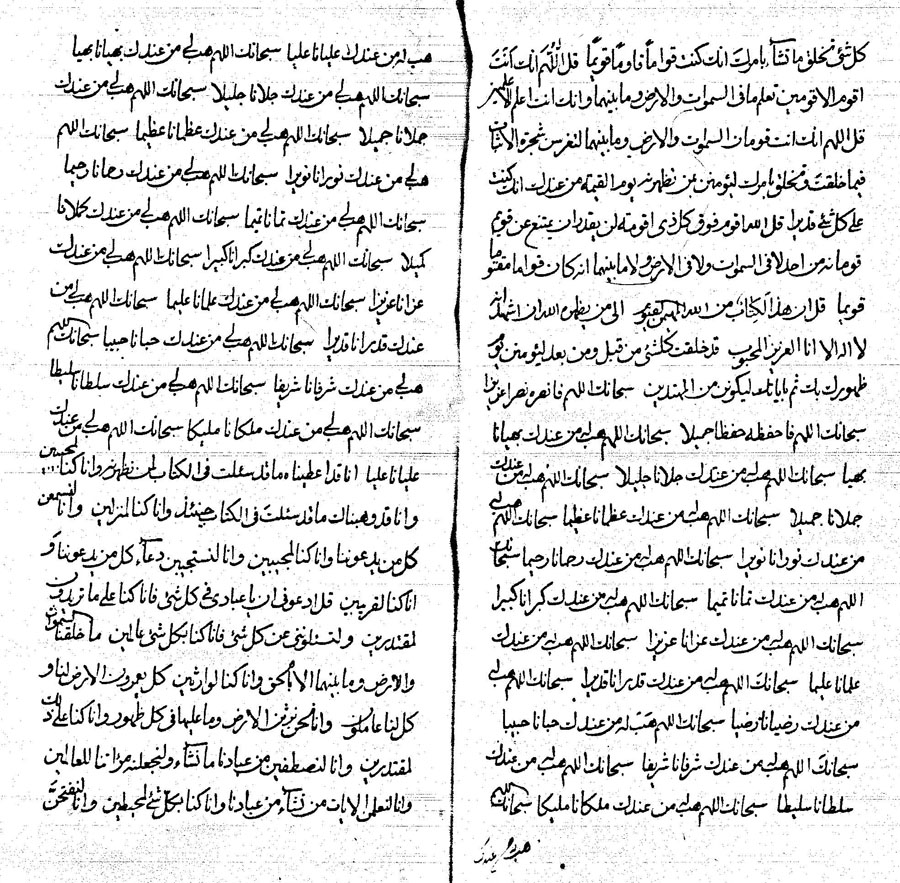 كل شئ تخلق ما تشآء بامرك انك كنت قواما قاوما قويما قل اللهم انك كنت
اقوم الاقومين تعلم ما فى السموات والارض وما بينهما وانك انت اعلم
قل اللهم انك انت قومان السموات والارض وما بينهما لتغرس شجرة الاثبات
فيما خلقت وتخلق بامرك ليؤمنن بمن تظهرنه يوم القيمة من عندك انك كنت
على كل شئ قديرا قل الله اقوم فوق كل ذى اقومة لن يقدر ان يمتنع عن قويم
قومانه من احد لا فى السموات ولا فى الارض ولا ما بينهما انه كان قواما مقتوما
قويما قل ان هذا الكتاب من الله المهيمن القيوم الى من يظهره الله ان اشهد انه
لا اله الا انا العزيز المحبوب قد خلقت كل شئ من قبل ومن بعد ليؤمنن يوم
ظهورك بك ثم باياتك ليكونن من المهتدين سبحانك اللهم فانصره نصرا عزيزا
سبحانك اللهم فاحفظه حفظا جميلا سبحانك اللهم هب لى من عندك بهيانا
بهيا سبحانك اللهم هب لى من عندك جلانا جليلا سبحانك اللهم هب لى من عندك
جملانا جميلا سبحانك اللهم هب لى من عندك عظمانا عظيما سبحانك اللهم هب لى
من عندك نورانا نويرا سبحانك اللهم هب لى من عندك رحمانا رحيما سبحانك
اللهم هب لى من عندك تمانا تميما سبحانك اللهم هب لى من عندك كبرانا كبيرا
سبحانك اللهم هب لى من عندك عزانا عزيزا سبحانك اللهم هب لى من عندك
علمانا عليما سبحانك اللهم هب لى من عندك قدرانا قديرا سبحانك اللهم هب لى
من عندك رضيانا رضيا سبحانك اللهم هب لى من عندك حبانا حبيبا
سبحانك اللهم هب لى من عندك شرفانا شريفا سبحانك اللهم هب لى من عندك
سلطانا سليطا سبحانك اللهم هب لى من عندك ملكانا مليكا سبحانك اللهم
هب لى من عندك
هب لى من عندك عليانا عليا سبحانك اللهم هب لى من عندك بهيانا بهيا
سبحانك اللهم هب لى من عندك جلانا جليلا سبحانك اللهم هب لى من عندك
جملانا جميلا سبحانك اللهم هب لى من عندك عظمانا عظيما سبحانك اللهم
هب لى من عندك نورانا نويرا سبحانك اللهم هب لى من عندك رحمانا رحيما
سبحانك اللهم هب لى من عندك تمانا تميما سبحانك اللهم هب لى من عندك كملانا
كميلا سبحانك اللهم هب لى من عندك كبرانا كبيرا سبحانك اللهم هب لى من عندك
عزانا عزيزا سبحانك اللهم هب لى من عندك علمانا عليما سبحانك اللهم هب لى من
عندك قدرانا قديرا سبحانك اللهم هب لى من عندك حبانا حبيبا سبحانك اللهم
هب لى من عندك شرفانا شريفا سبحانك اللهم هب لى من عندك سلطانا سليطا
سبحانك اللهم هب لى من عندك ملكانا مليكا سبحانك اللهم هب لى من عندك
عليانا عليا انا قد اعطيناه ما قد سئلت فى الكتاب لمن نظهرنه وانا كنا لمجيبين
وانا قد وهبناك ما قد سئلت فى الكتاب حينئذ وانا كنا لمنزلين وانا لنسمعن
كل من يدعوننا وانا كنا لمجيبين وانا لنستجيبن دعآء كل من يدعوننا و
انا كنا لقريبين قل ادعونى ان يا عبادى فى كل شئ فانا كنا على ما تريدون
لمقتدرين ولتسئلونى عن كل شئ فانا كنا بكل شئ عالمين ما خلقنا السموات
والارض وما بينهما الا بالحق وانا كنا لوارثين كل يعودون الارض لنا و
كل لنا عاملون وانا نحن نرث الارض وما عليها فى كل ظهور وانا كنا على ذلك
لمقتدرين وانا لنصطفين من عبادنا ما نشآء ولنجعلنه مرآتنا للعالمين
وانا لنعلمن الايات من نشآء من عبادنا وانا كنا بكل شئ لمحيطين وانا لنفتحن